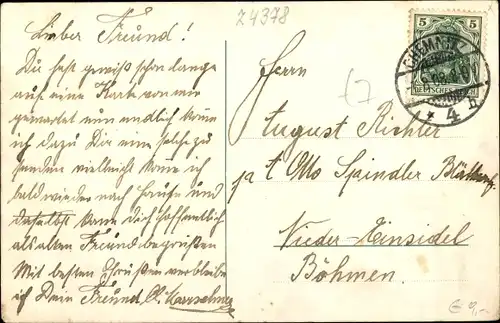 24378
Lieber Freund!
Du hast gewiß schon lange
auf eine Karte von mir
gewartet nun endlich kome
ich dazu Dir eine solche zu
senden vielleicht kome ich
bald wieder nach Hause und
kann dich hoffentlich
als alten Freund begrüßen
Mit besten Grüßen verbleibe
ich Dein Freund
5 5
DEUTSCHES REICH
CHEMNITZ
* 4 b
Herrn
August Richter
Otto Spindler
Nieder-Einsidel
Böhmen.